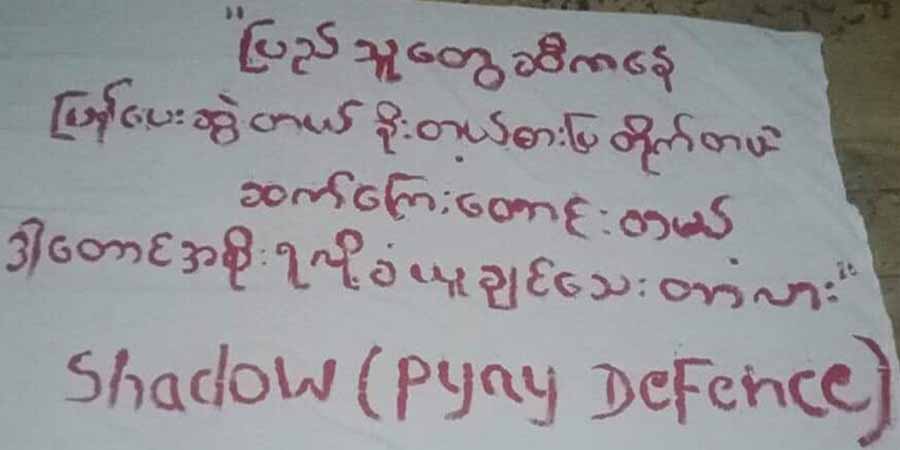 "ပြည်သူတွေဆီကနေ
ပြန်ပေးဆွဲတယ် ခိုးတယ်ဓားပြတိုက်တယ်
ဆက်ကြေးတောင်းတယ်
ဒါတောင်အစိုးရလို့ခံယူချင်သေးတာလား"
Shadow (Pyay Defence)